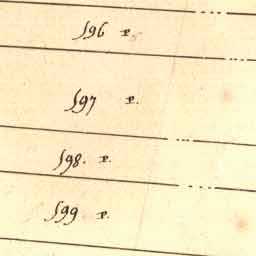 596 P.
597 P.
598. P.
599 P.